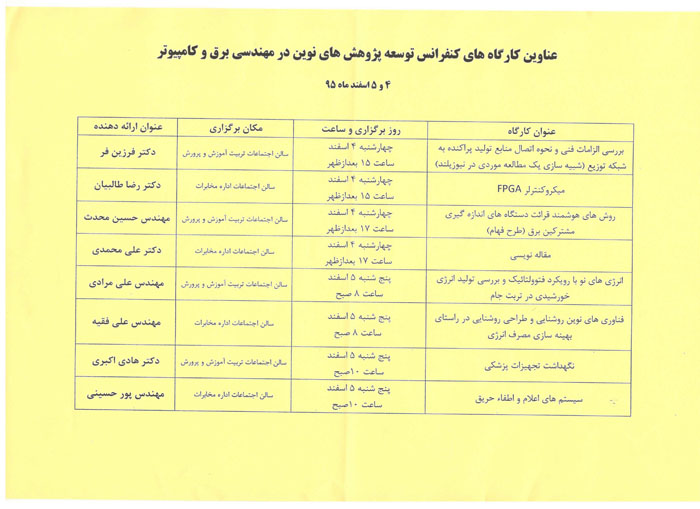 عناوین کارگاه های کنفرانس توسعه پژوهش های نوین در مهندسی برق و کامپیوتر
۴ و ۵ اسفند ماه ۹۵
عنوان کارگاه روز برگزاری و ساعت مکان برگزاری عنوان ارائه دهنده
بررسی الزامات فنی و نحوه اتصال منابع تولید پراکنده به
شبکه توزیع (شبیه سازی یک مطالعه موردی در نیوزیلند)
چهارشنبه ۴ اسفند
ساعت ۱۵ بعدازظهر
سالن اجتماعات تربیت آموزش و پرورش
دکتر فرزین فر
میکروکنترلر FPGA
چهارشنبه ۴ اسفند
ساعت ۱۵ بعدازظهر
سالن اجتماعات اداره مخابرات
دکتر رضا طالبیان
روش های هوشمند قرائت دستگاه های اندازه گیری
مشترکین برق (طرح فهام)
چهارشنبه ۴ اسفند
ساعت ۱۷ بعدازظهر
سالن اجتماعات تربیت آموزش و پرورش
مهندس حسین محدث
مقاله نویسی
چهارشنبه ۴ اسفند
ساعت ۱۷ بعدازظهر
سالن اجتماعات اداره مخابرات
دکتر علی محمدی
انرژی های نو با رویکرد فتوولتائیک و بررسی تولید انرژی
خورشیدی در تربت جام
پنج شنبه ۵ اسفند
ساعت ۸ صبح
سالن اجتماعات تربیت آموزش و پرورش
مهندس علی مرادی
فناوری های نوین روشنایی و طراحی روشنایی در راستای
بهینه سازی مصرف انرژی
پنج شنبه ۵ اسفند
ساعت ۸ صبح
سالن اجتماعات اداره مخابرات
مهندس علی فقیه
نگهداشت تجهیزات پزشکی
پنج شنبه ۵ اسفند
ساعت ۱۰صبح
سالن اجتماعات تربیت آموزش و پرورش
دکتر هادی اکبری
سیستم های اعلام و اطفاء حریق
پنج شنبه ۵ اسفند
ساعت ۱۰صبح
سالن اجتماعات اداره مخابرات
مهندس پور حسینی